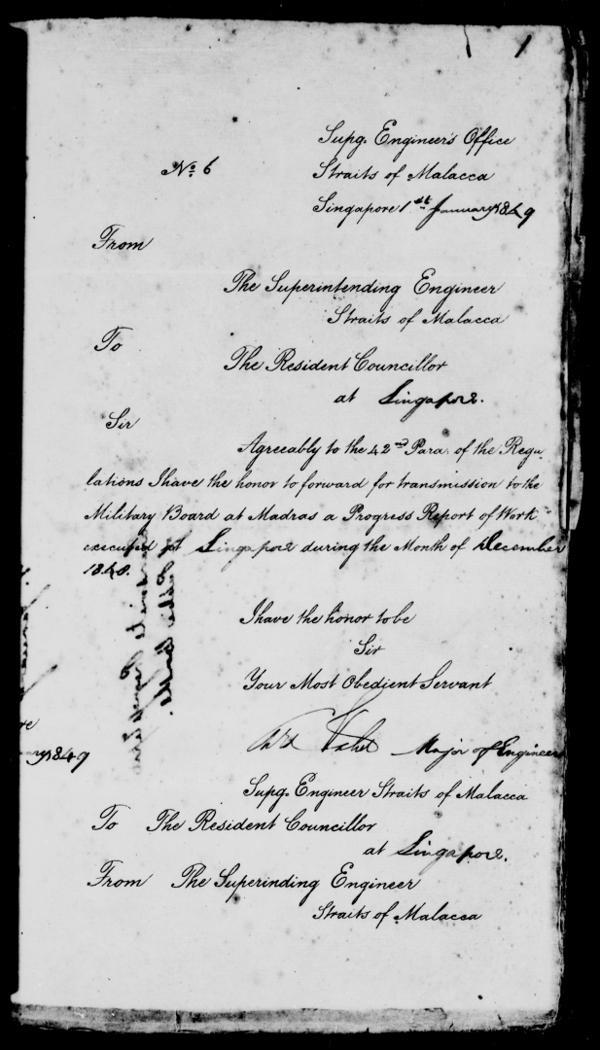 1
Supg. Engineer's Office
No. 6
Straits of Malacca
Singapore 1st January 1849
From
The Superintending Engineer
Straits of Malacca
To
The Resident Councillor
at Singapore.
Sir
Agreeably to the 42nd Para. of the Regu
lations I have the honor to forward for transmission to the
Military Board at Madras a Progress Report of Work
executed at Singapore during the Month of December
1848.
I have the honor to be
Sir
Your Most Obedient Servant
Major of Engineers
Supg. Engineer Straits of Malacca
To The Resident Councillor
at Singapore.
From The Superinding Engineer
Straits of Malacca
1849